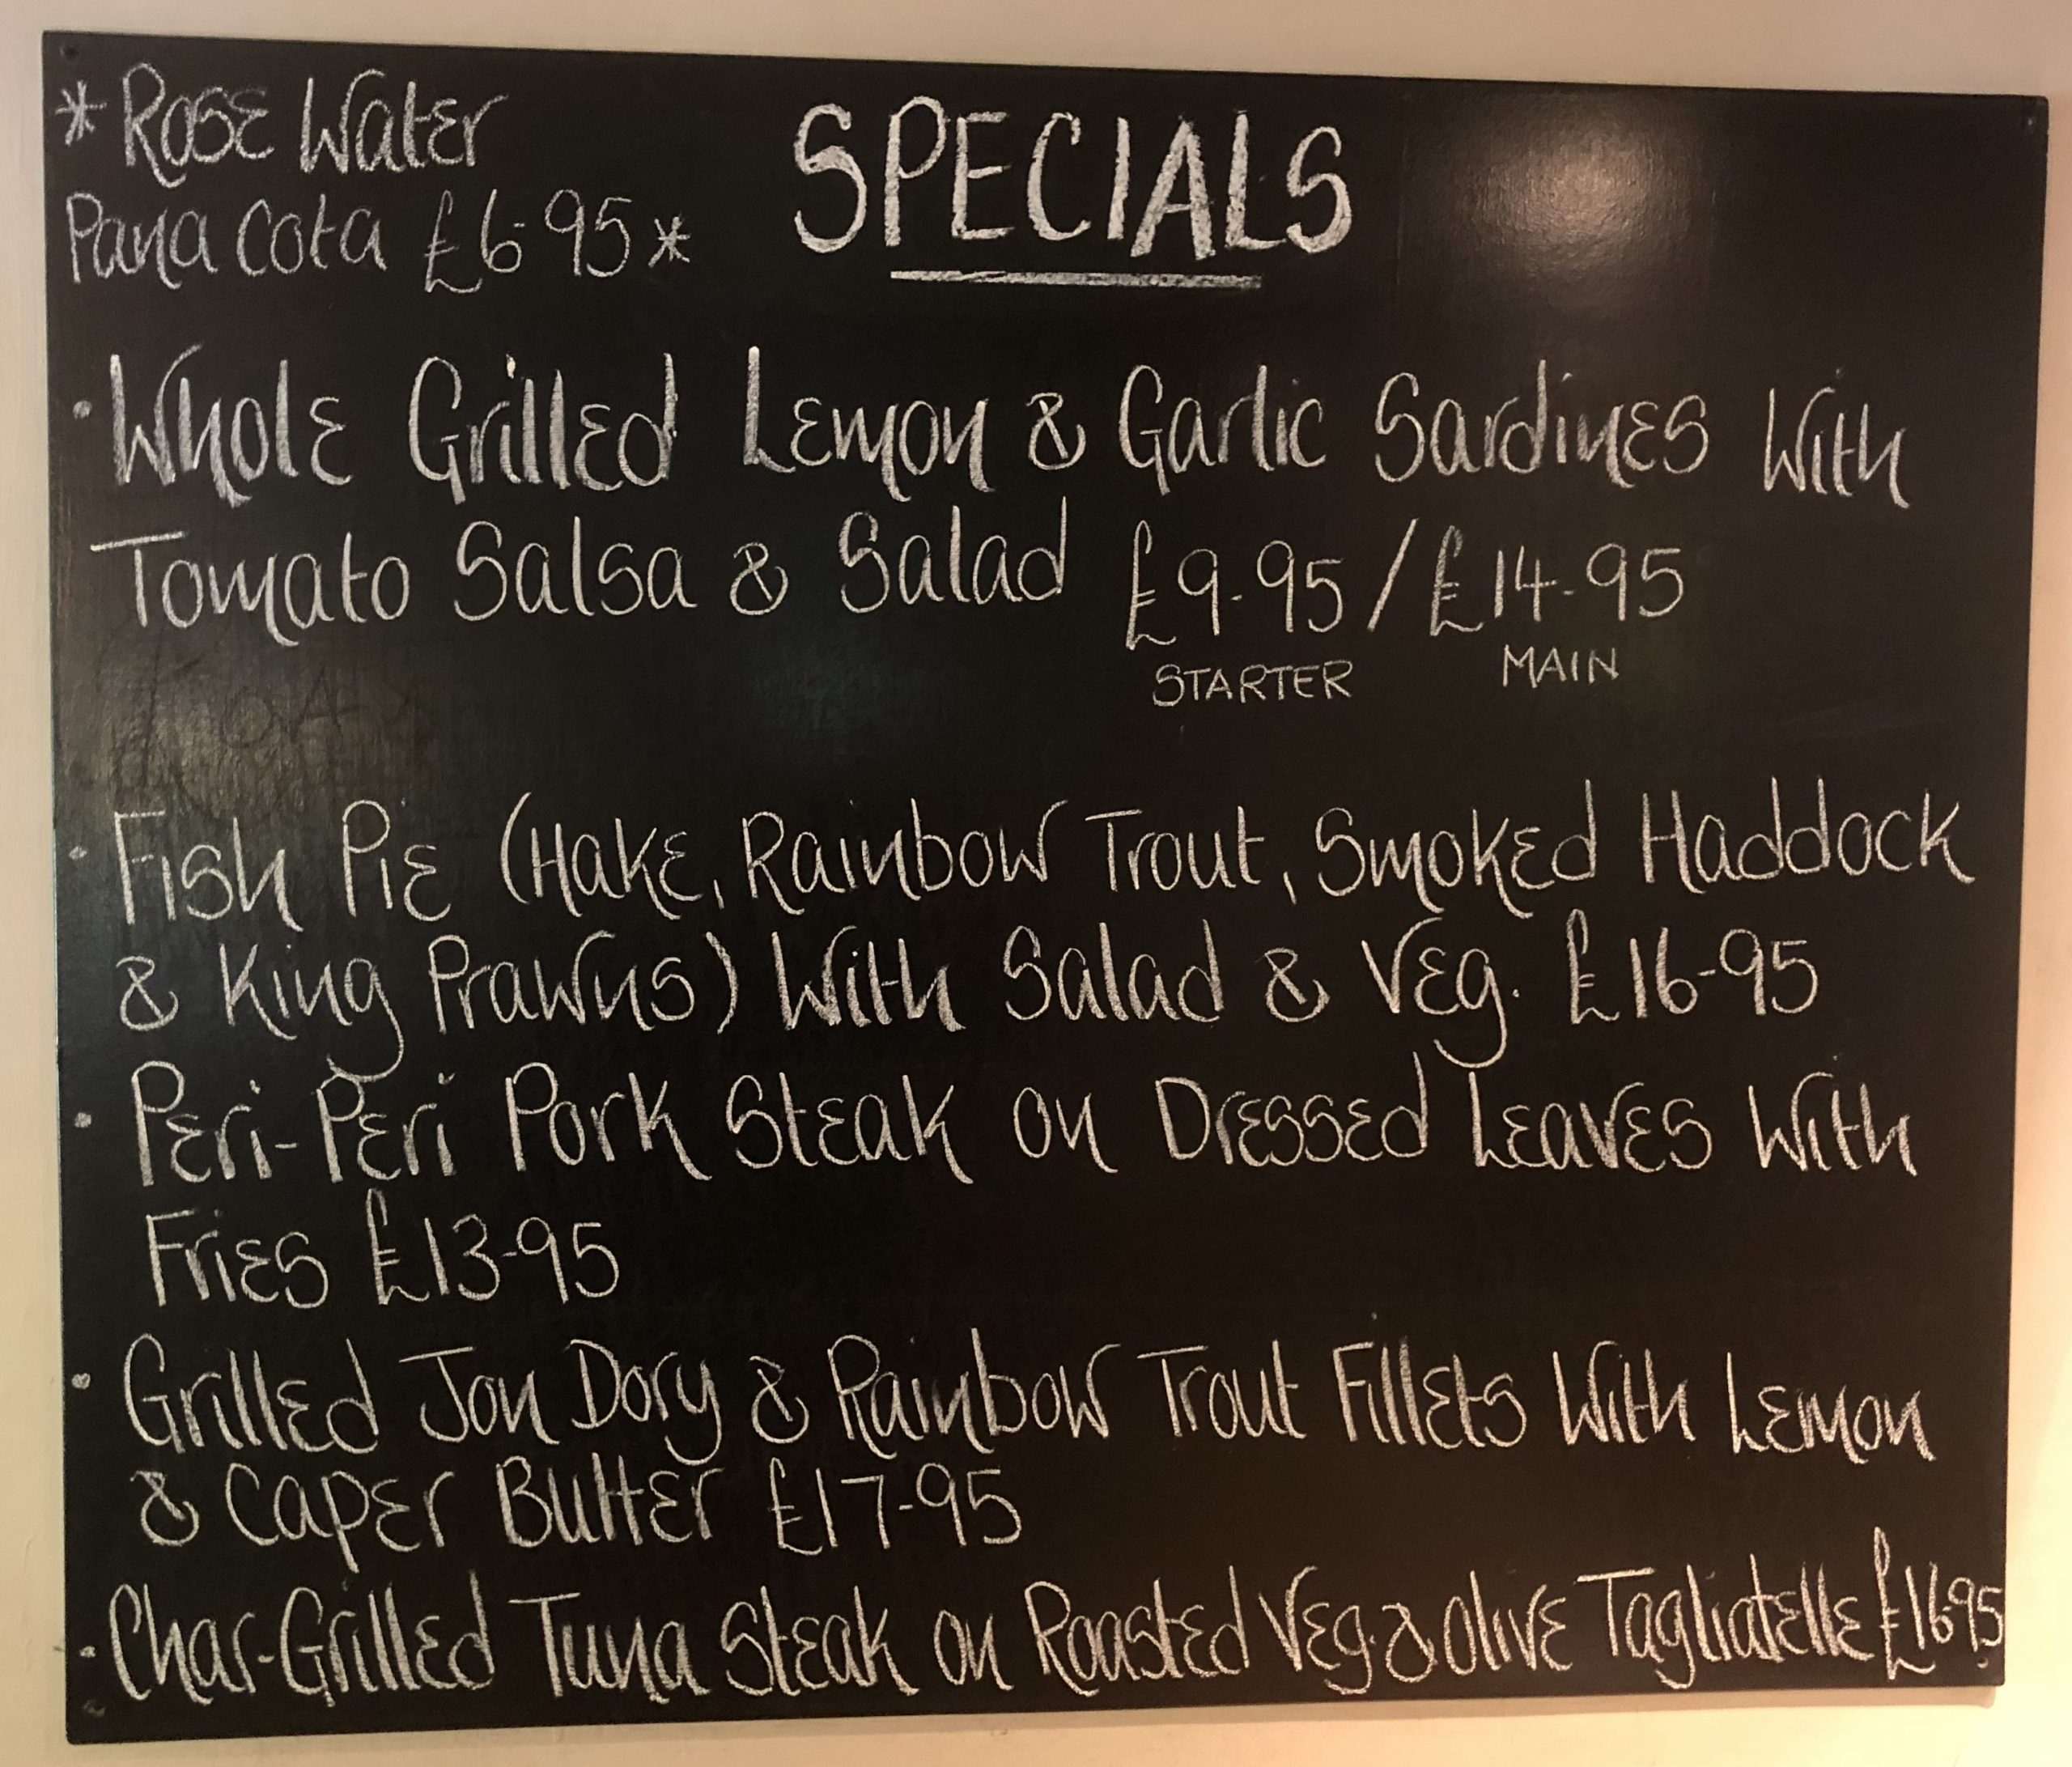 * Rose Water
Pana Cota £6-95 *
SPECIALS
· Whole Grilled Lemon & Garlic Sardines With
Tomato Salsa & Salad £9-95 / £14-95
STARTER MAIN
· Fish Pie (Hake, Rainbow Trout, Smoked Haddock
& King Prawns) With Salad & Veg. £16-95
· Peri-Peri Pork Steak on Dressed Leaves With
Fries £13-95
· Grilled Jon Dory & Rainbow Trout Fillets With Lemon
& Caper Butter £17-95
· Char-Grilled Tuna Steak on Roasted Veg. & Olive Tagliatelle £16-95